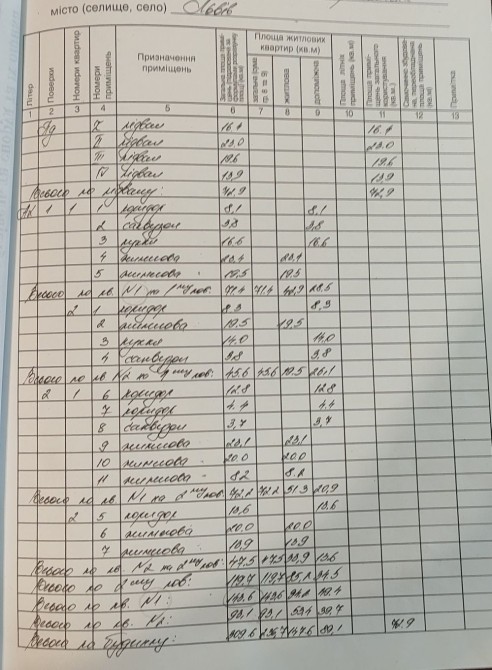 місто (селище, село) Львів
Літер
Поверхи
Номери квартир
Номери приміщень
Призначення приміщень
Площа житлових квартир (кв.м)
загальна (сума гр. 8 та 9)
житлова
допоміжна
Площа літніх приміщень (кв.м)
Площа приміщень загального користування (кв.м)
Примітка
1 2 3 4 5 6 7 8 9 10 11 12 13
Пд I підвал 16.4 16.4
II підвал 23.0 23.0
III підвал 19.6 19.6
IV підвал 13.9 13.9
Всього по підвалу: 72,9 72,9
1 1 1 коридор 8,1 8,1
2 санвузол 3,8 3,8
3 кухня 16.6 16.6
4 житлова 23.4 23.4
5 житлова 19,5 19,5
Всього по кв. N1 на 1му пов: 71.4 71.4 42,9 28.5
2 1 коридор 8,3 8,3
2 житлова 19.5 19.5
3 кухня 14.0 14.0
4 санвузол 3,8 3,8
Всього по кв N2 на 1му пов: 45.6 45.6 19.5 26.1
2 1 6 коридор 12.8 12.8
7 коридор 4.4 4,4
8 санвузол 3,7 3,7
9 житлова 23,1 23,1
10 житлова 20.0 20.0
11 житлова 8.2 8.2
Всього по кв. N1 на 2му пов: 72.2 72.2 51.3 20,9
2 5 коридор 13,6 13,6
6 житлова 20,0 20.0
7 житлова 13,9 13,9
Всього по кв. N2 на 2му пов: 47.5 47.5 33,9 13.6
Всього по 2му пов: 119,7 119,7 85,2 34,5
Всього по кв. N1: 143.6 143.6 94.2 49.4
Всього по кв. N2: 93,1 93,1 53.4 39,7
Всього по будинку: 309.6 236,7 147.6 89,1 72,9